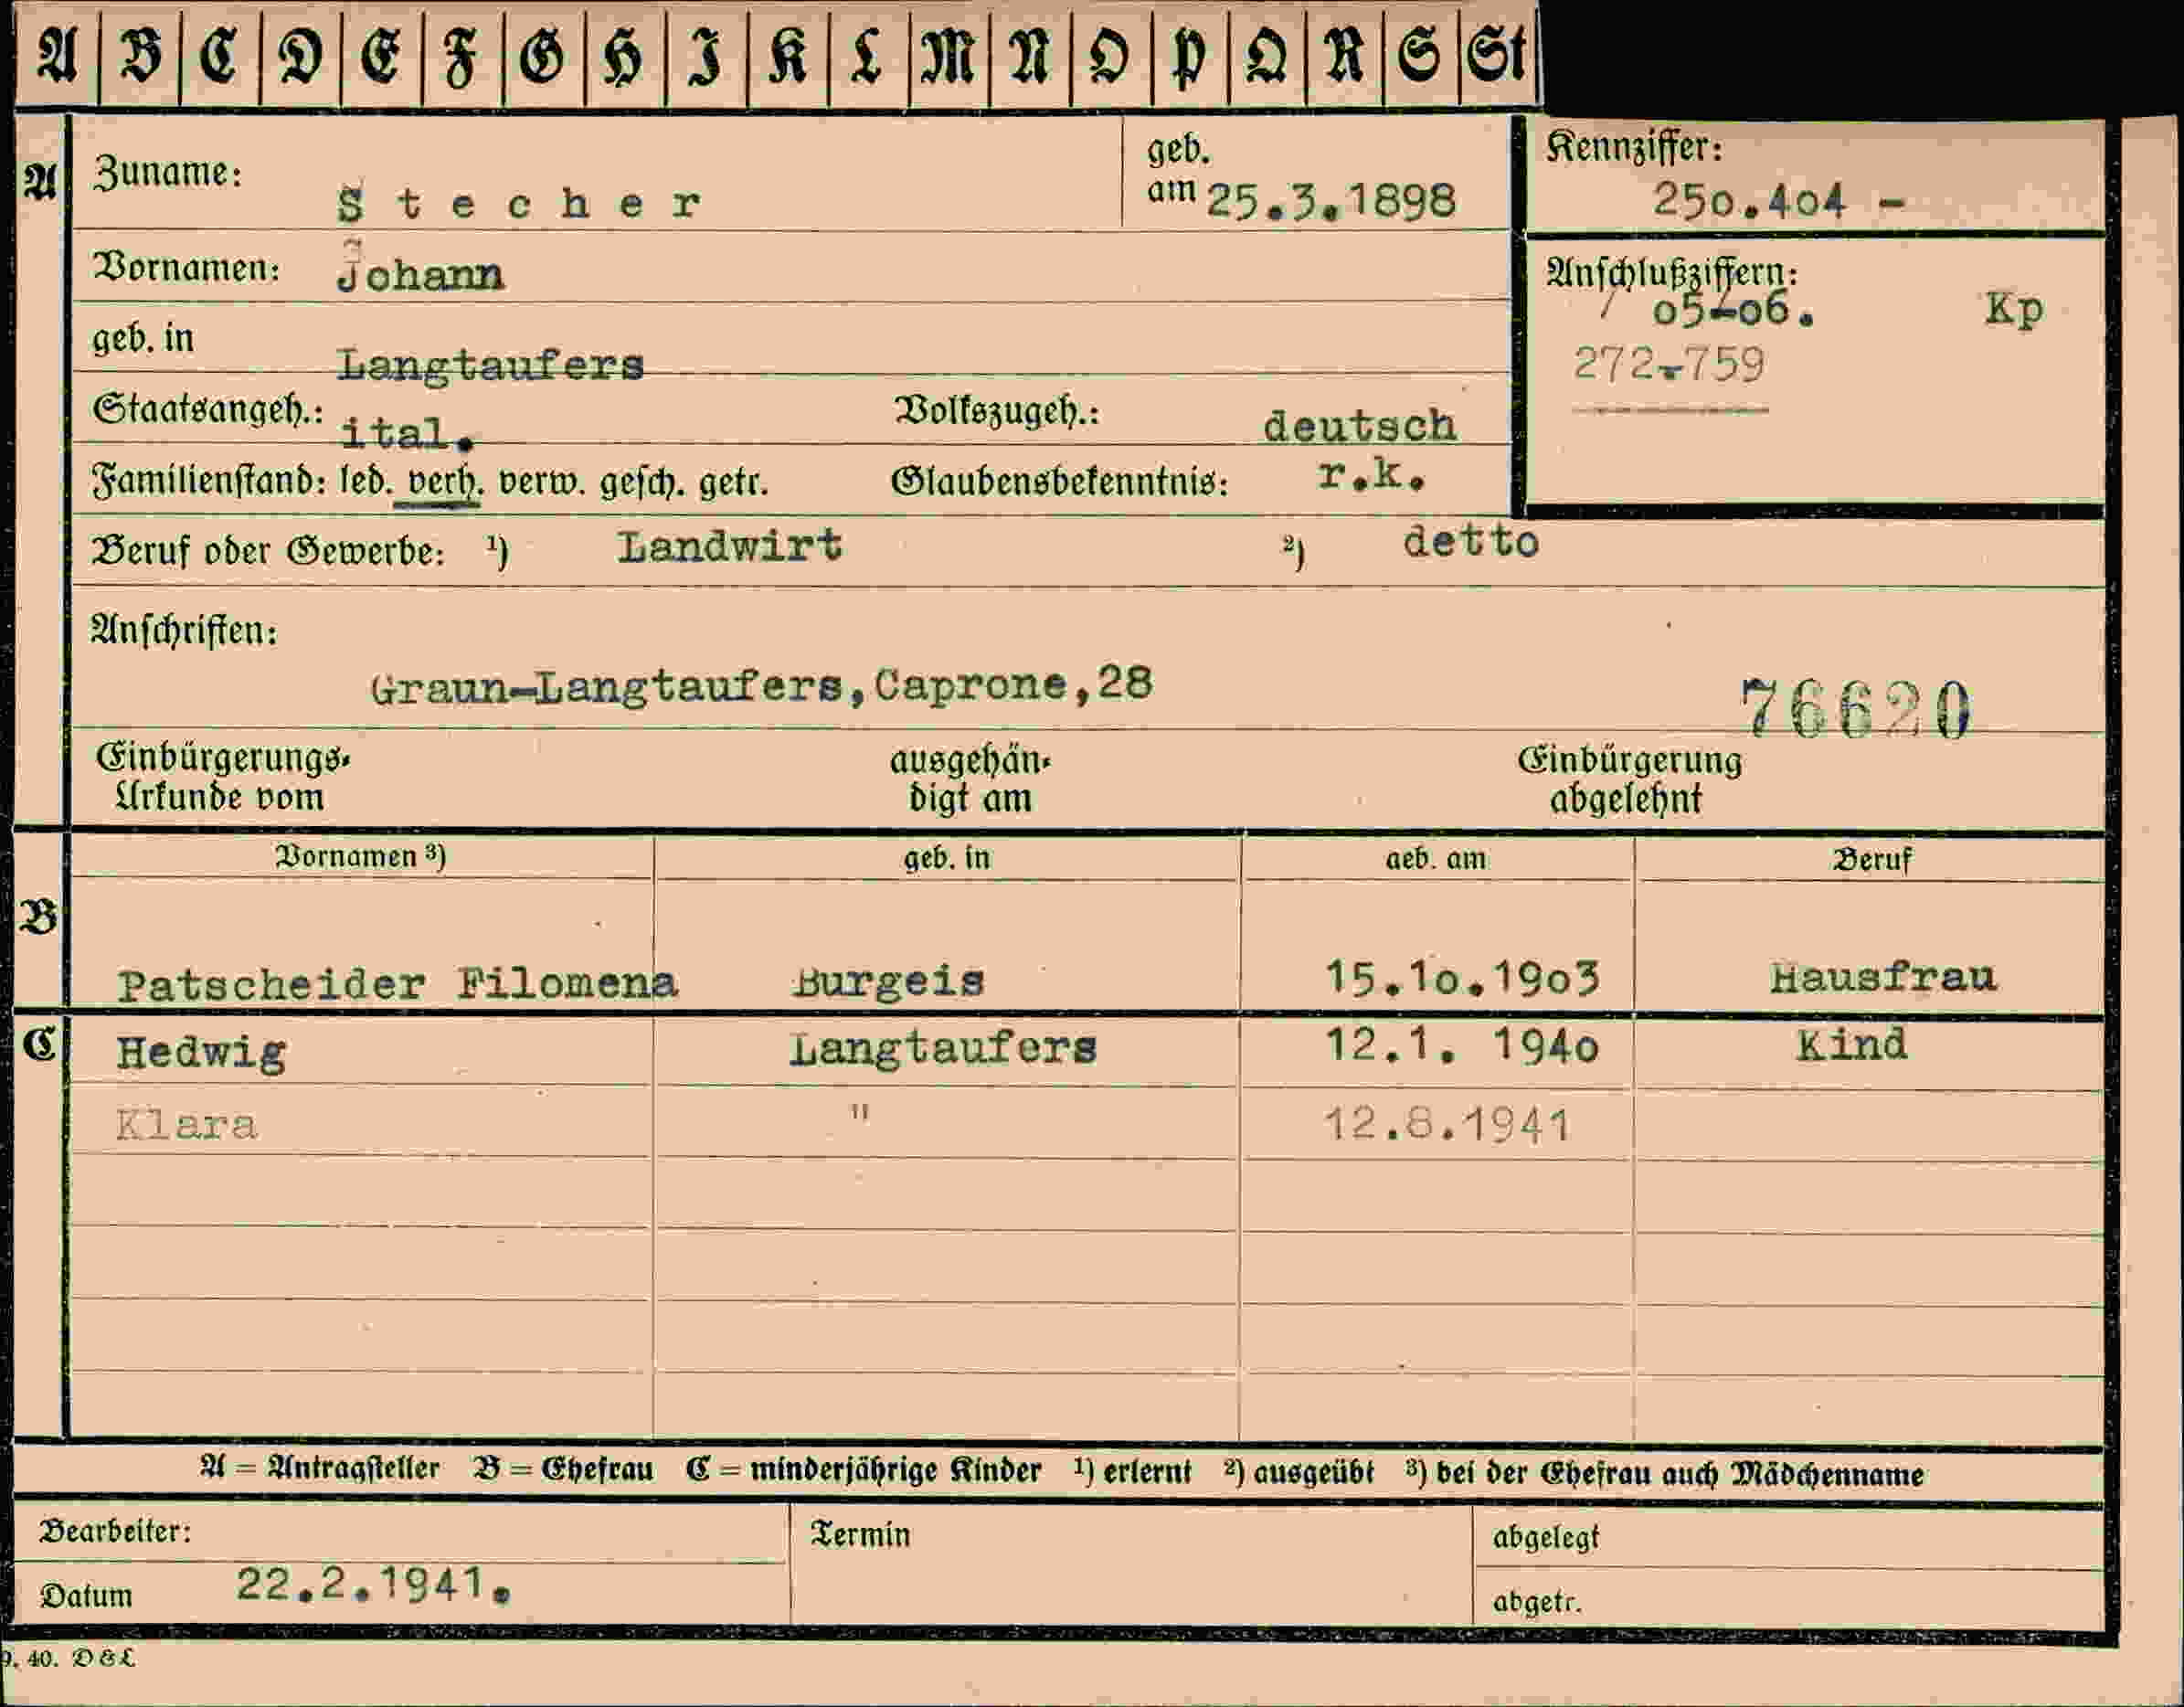 A B C D E F G H I K L M N O P Q R S St
A Zuname: Stecher geb. am 25.3.1898
Kennziffer: 250.404 -
Vornamen: Johann
Anschlußziffern:
/ 05-06. Kp
272-759
geb. in Langtaufers
Staatsangeh.: ital. Volkszugeh.: deutsch
Familienstand: led. verh. verw. gesch. getr. Glaubensbekenntnis: r.k.
Beruf oder Gewerbe: ¹) Landwirt ²) detto
Anschriften:
Graun-Langtaufers,Caprone,28
76620
Einbürgerungs-Urkunde vom ausgehän-digt am Einbürgerung abgelehnt
Vornamen ³) geb. in geb. am Beruf
B
Patscheider Filomena Burgeis 15.10.1903 Hausfrau
C Hedwig Langtaufers 12.1. 1940 Kind
Klara " 12.8.1941
A = Antragsteller B = Ehefrau C = minderjährige Kinder ¹) erlernt ²) ausgeübt ³) bei der Ehefrau auch Mädchenname
Bearbeiter: Termin abgelegt
Datum 22.2.1941. abgetr.
9. 40. D&L